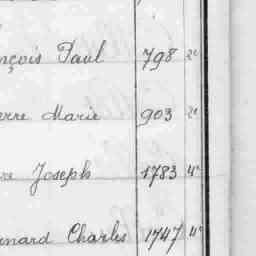 nçois Paul 798 2e
erre Marie 903 2e
Joseph 1783 4e
nard Charles 1747 4e